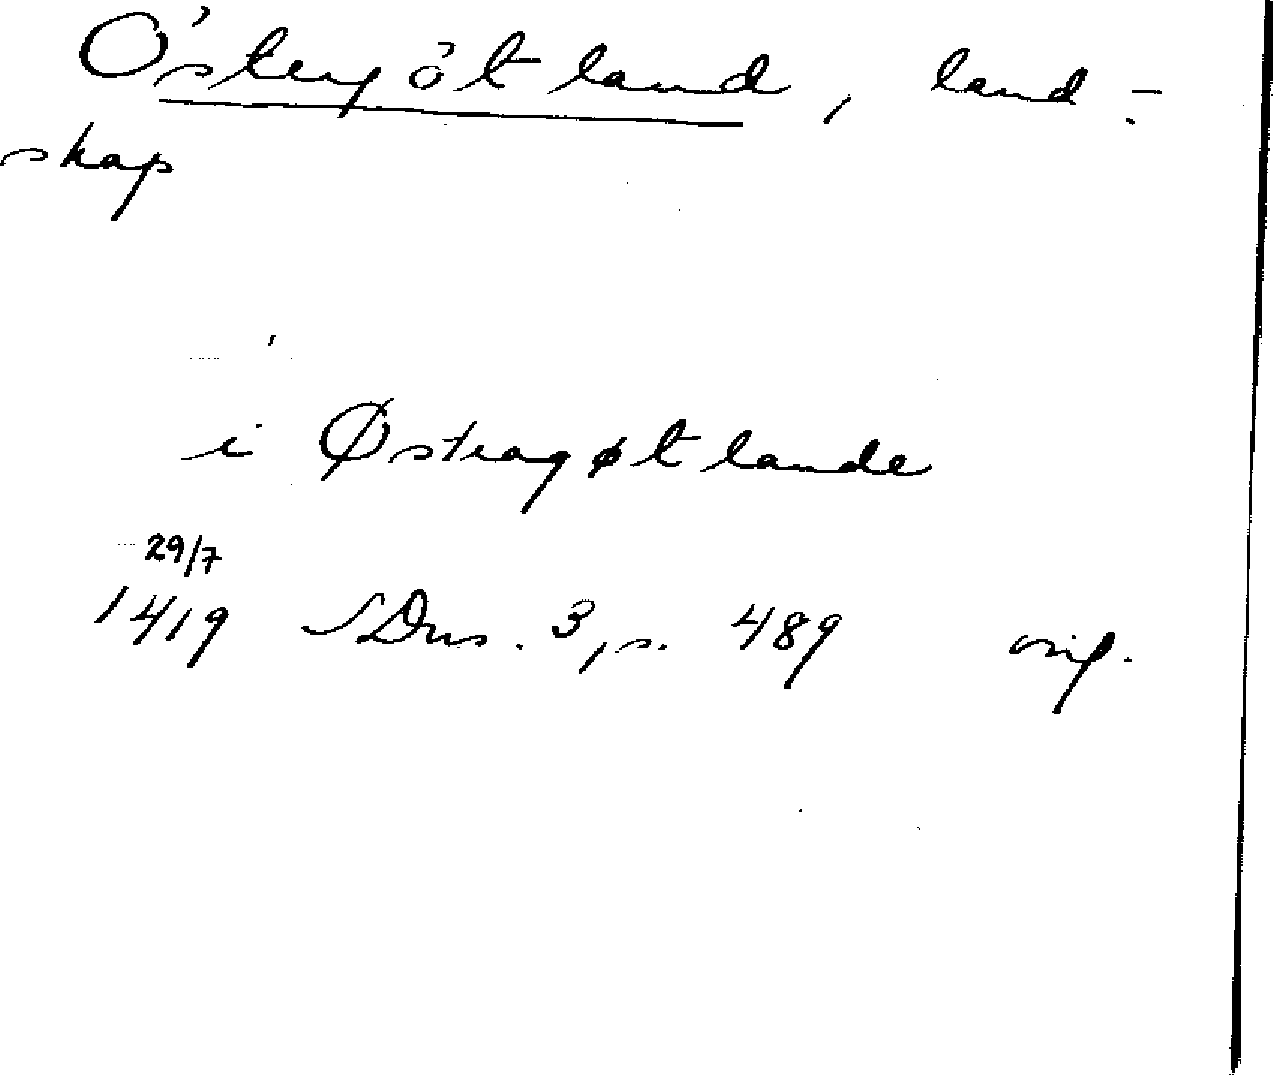 Östergötland, land-
skap
i Østragøtlande
29/7
1419 SDns. 3, s. 489 orig.